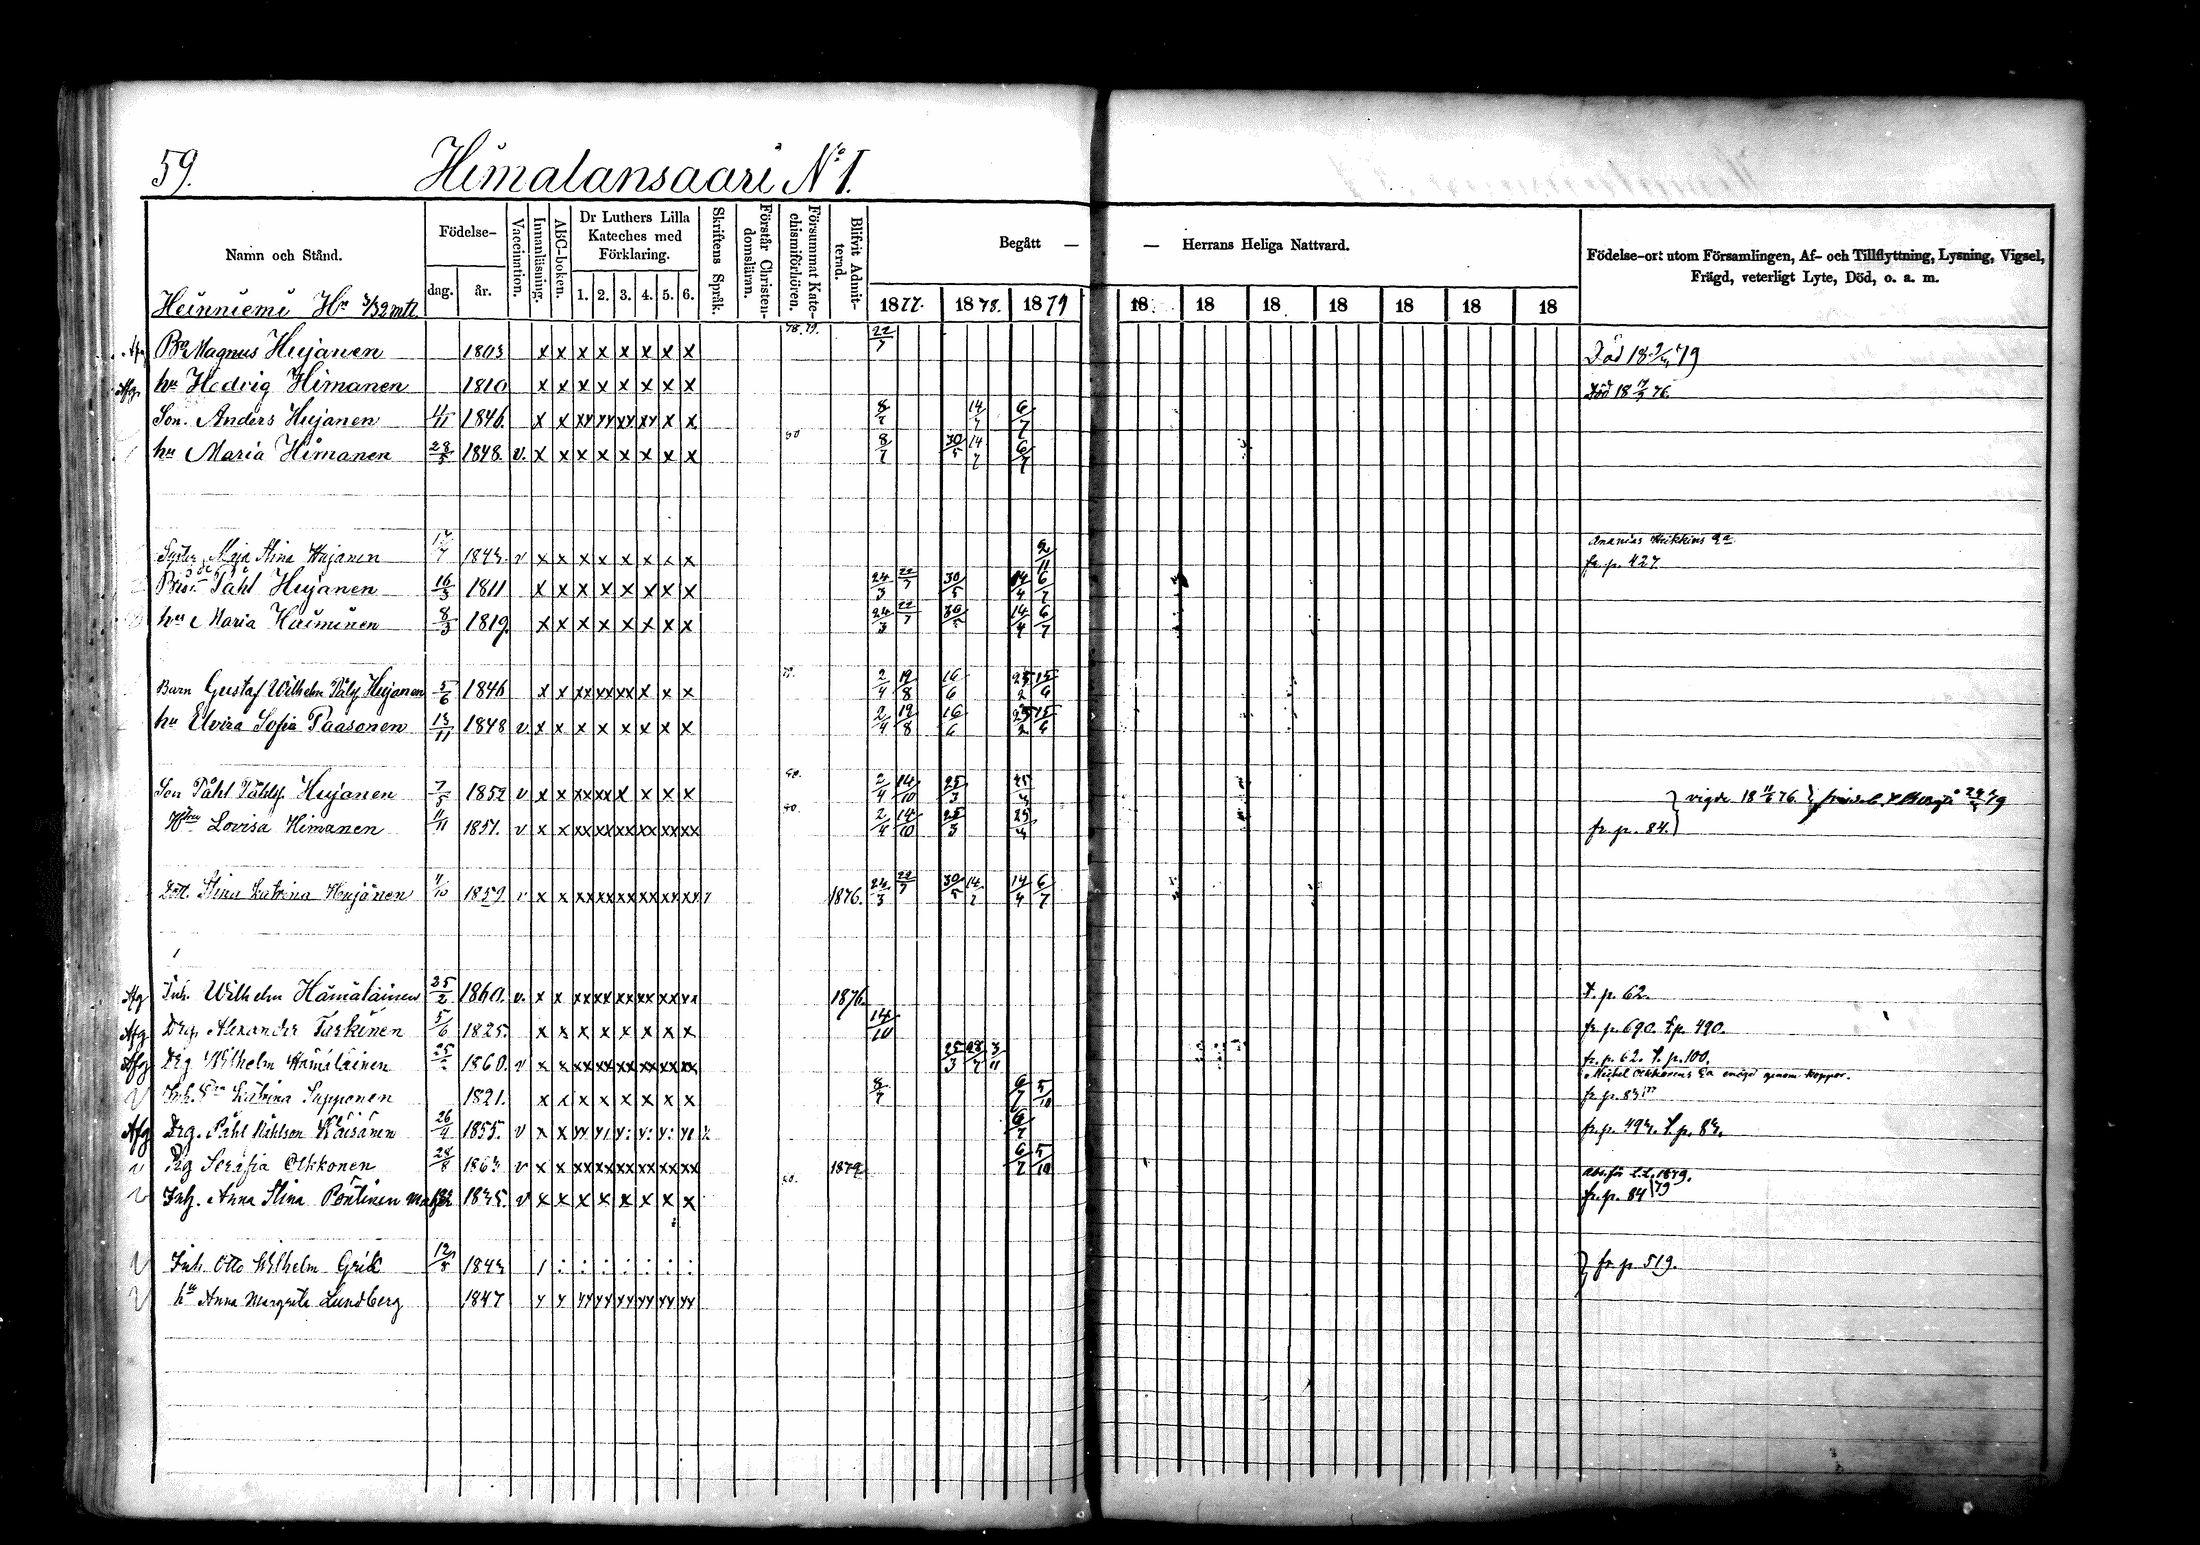 59.
Himalansaari No I.
Namn och Stånd.
Födelse-
dag.
år.
Vaccination.
Innanläsning.
ABC-boken.
Dr Luthers Lilla Kateches med Förklaring.
1. 2. 3. 4. 5. 6.
Skriftens Språk.
Förstår Christendomsläran.
Försummat Katechismiförhören.
Blifvit Admitterad.
Begått —
— Herrans Heliga Nattvard.
1877. 1878. 1879
18 18 18 18 18 18 18
Födelse-ort utom Församlingen, Af- och Tillflyttning, Lysning, Vigsel, Frägd, veterligt Lyte, Död, o. a. m.
Heinniemi Hn 3/32 mtl
Magnus Hujanen 1803 x x x x x x x x 78.79. 22/7
hu Hedvig Himanen 1810 x x x x x x x x
Son. Anders Hujanen 4/11 1846. x x xy yy xy xy x x 8/7 14/7 6/7
hu Maria Himanen 28/5 1848. v. x x x x x x x x 80 8/7 30/5 14/7 6/7
Syster Maja Stina Hujanen 17/7 1843. v x x x x x x x x 9/11 fr. p. 427.
Påhl Hujanen 16/3 1811 x x x x x x x x 24/3 22/7 30/5 14/4 6/7
hu Maria Häiminen 8/3 1819. x x x x x x x x 24/3 22/7 30/5 14/4 6/7
Barn Gustaf Wilhelm Hujanen 5/6 1846 x x xx xx xx x x x 2/4 19/8 16/6 23/2 15/6
hu Elvira Sofia Paasonen 13/11 1848 v. x x x x x x x x 2/4 19/8 16/6 23/2 15/6
Son Påhl Påhlsf. Hujanen 7/5 1852 v x x xx xx x x x x 80. 2/4 14/10 25/3 vigde 18 11/6 76.
Lovisa Himanen 11/11 1857. v x x xx xx xx xx xx xx 80. 2/4 14/10 25/3 fr. p. 84.
Dott. Stina Katrina Hujanen 4/10 1859. v x x xx xx xx xx xx xx 1876. 24/3 22/7 30/5 14/7 14/4 6/7
Afg Inh. Wilhelm Hämäläinen 25/2 1860. v. x x xx xx xx xx xx xx 1876. t. p. 62.
Afg Drg. Alexander Tarkinen 5/6 1825. x x x x x x x x 14/10 fr. p. 690. t. p. 490.
Afg Drg Wilhelm Hämäläinen 25/2 1860. v x x xx xx xx xx xx xx 25/3 28/7 3/11 fr. p. 62. t. p. 100.
Inh. Katrina Supponen 1821. x x x x x x x x 8/7 6/7 5/10
Afg Drg. Påhl Påhlson Räisänen 26/4 1855. v x x 6/7 fr. p. 493. t. p. 83.
v Pig Serafia Olkkonen 28/8 1863 v x x xx xx xx xx xx xx 1879 6/7 5/10
Inh. Anna Stina Pöntinen 1835. v x x x x x x x x 80. fr. p. 84
Inh. Otto Wilhelm Grek 12/5 1843 fr p 519.
hu Anna Margreta Lundberg 1847